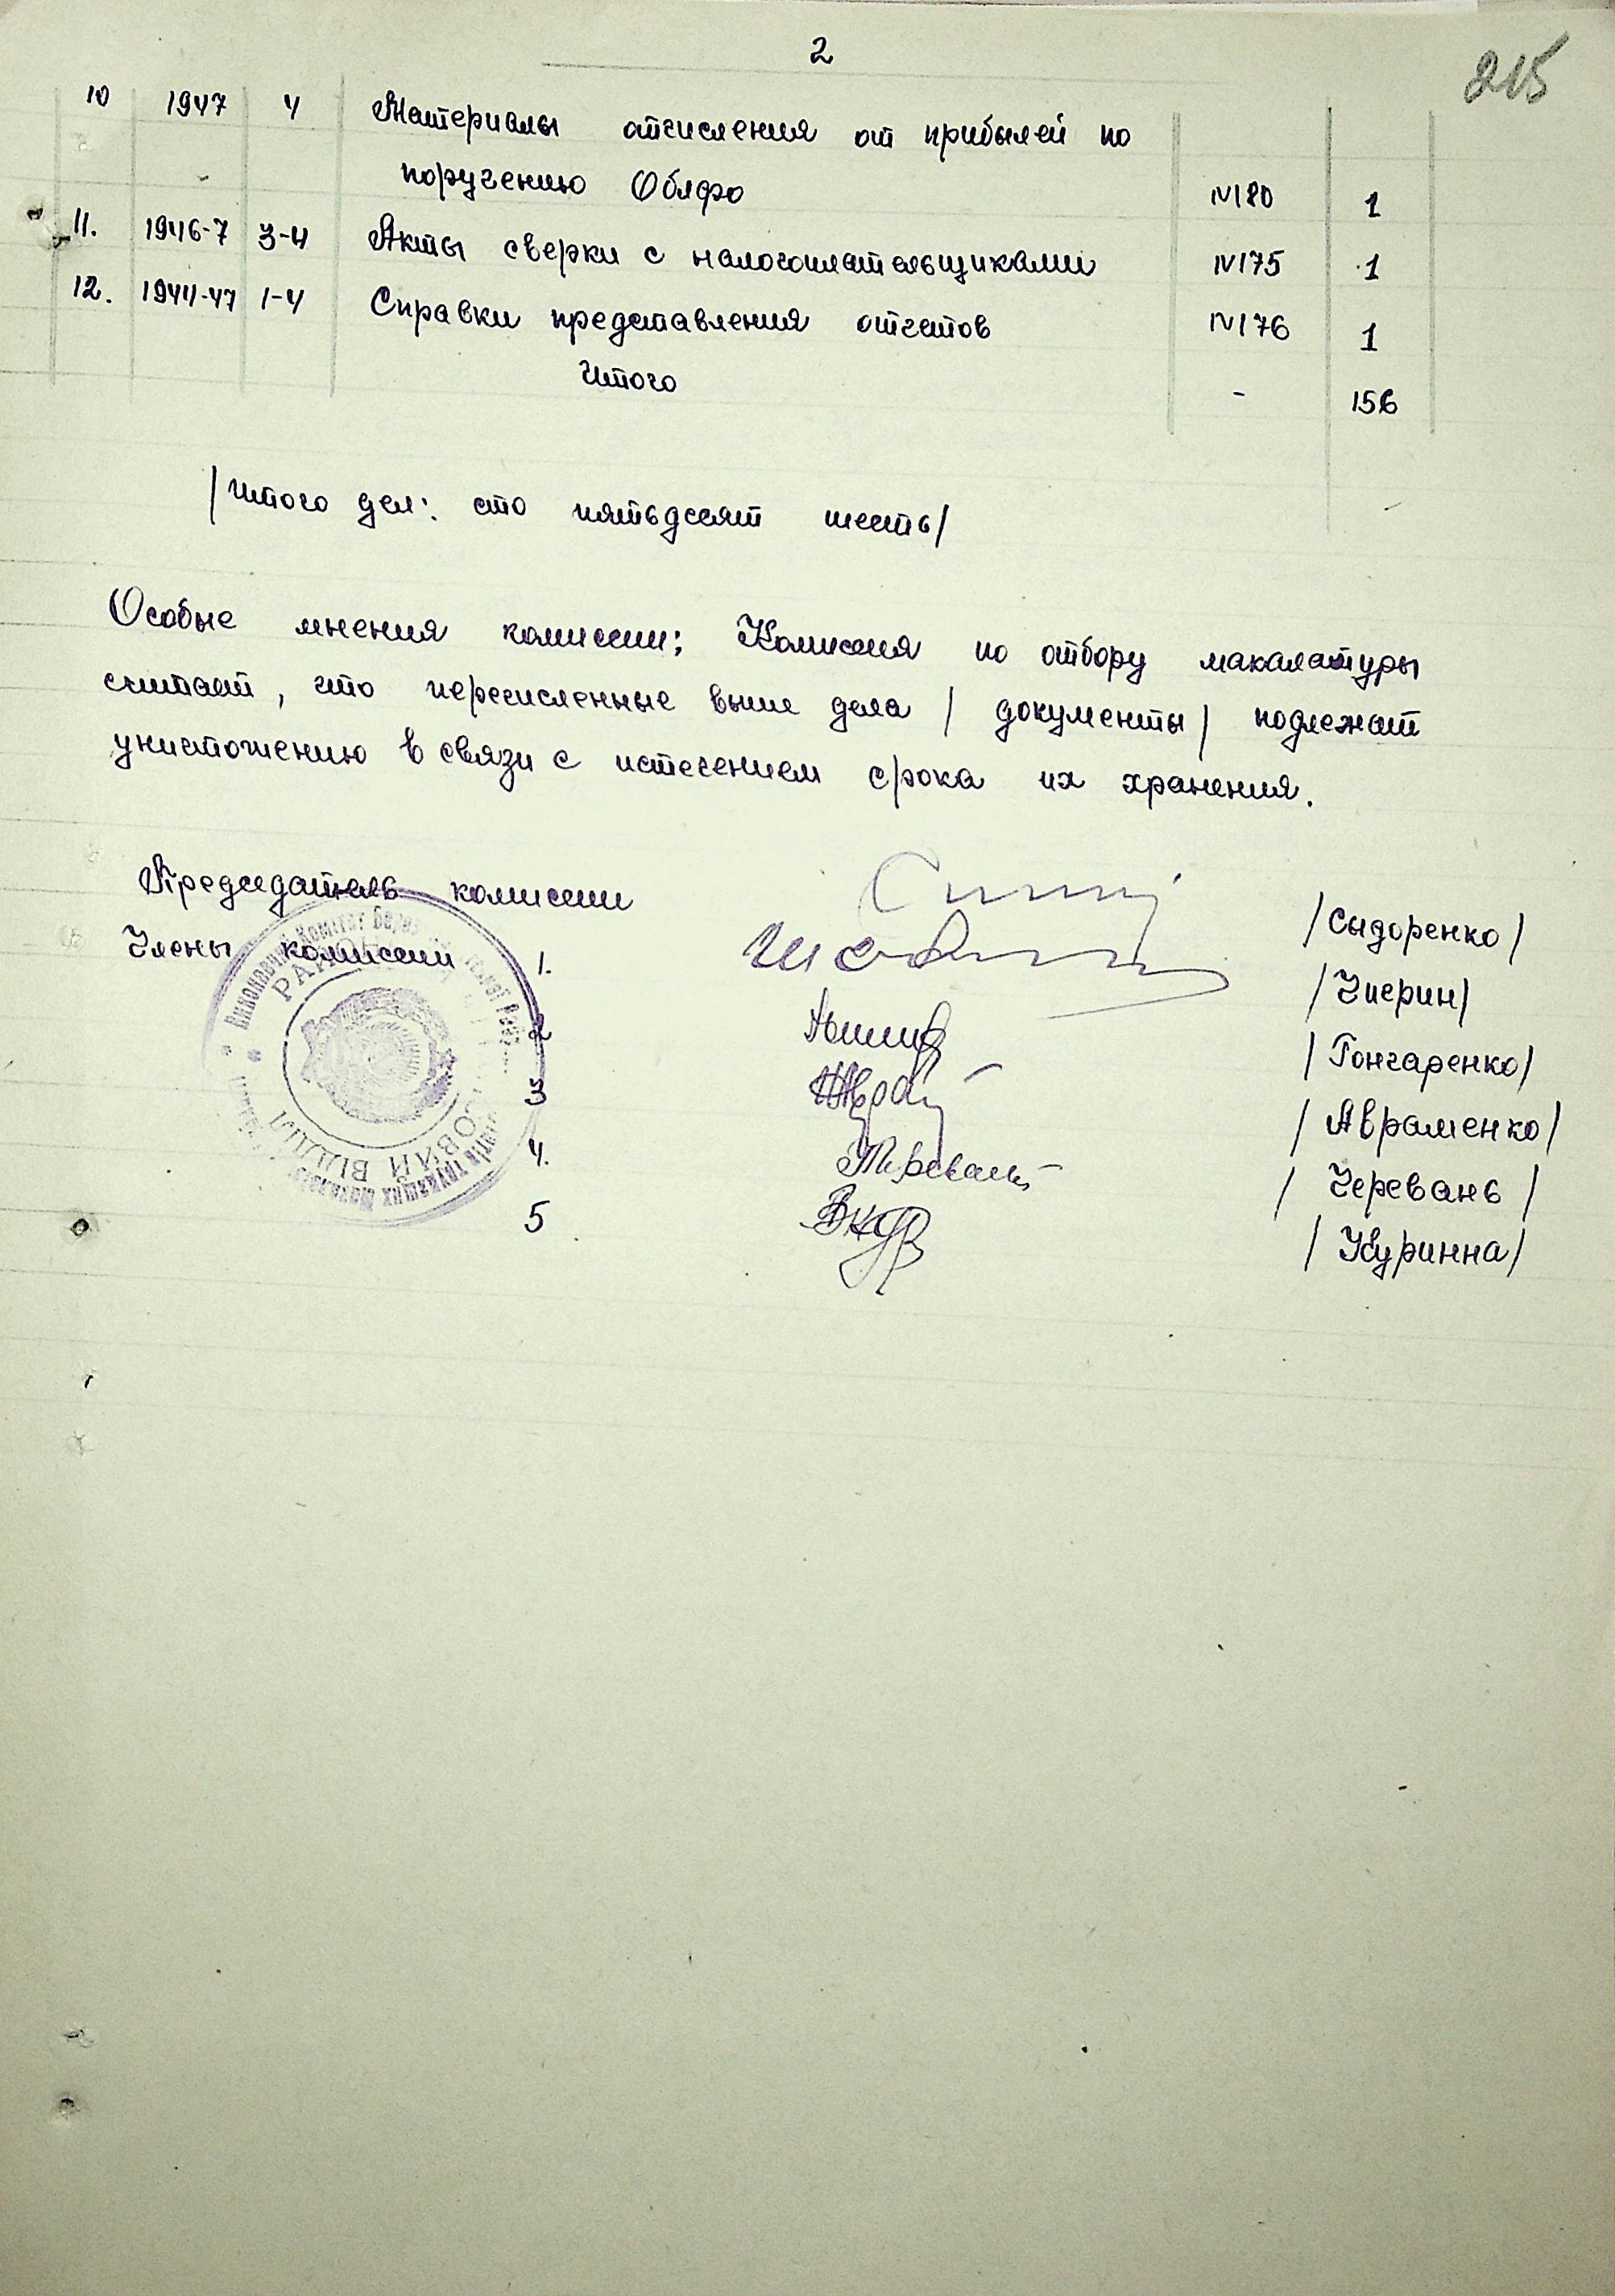 2
215
10 1947 4 Материалы отчисления от прибылей по
поручению Облфо №180 1
11. 1946-7 3-4 Акты сверки с налогоплательщиками №175 1
12. 1944-47 1-4 Справки представления отчетов №176 1
Итого - 156
/Итого дел: сто пятьдесят шесть/
Особые мнения комиссии; Комиссия по отбору макалатуры
считает, что перечисленные выше дела /документы/ подлежат
уничтожению в связи с истечением срока их хранения.
Председатель комиссии /Сыдоренко/
Члены комиссии 1. /Чперин/
2 /Гончаренко/
3 /Авраменко/
4. /Черевань/
5 /Куринна/
Виконавчий Комітет
ВІДДІЛ
трудящих